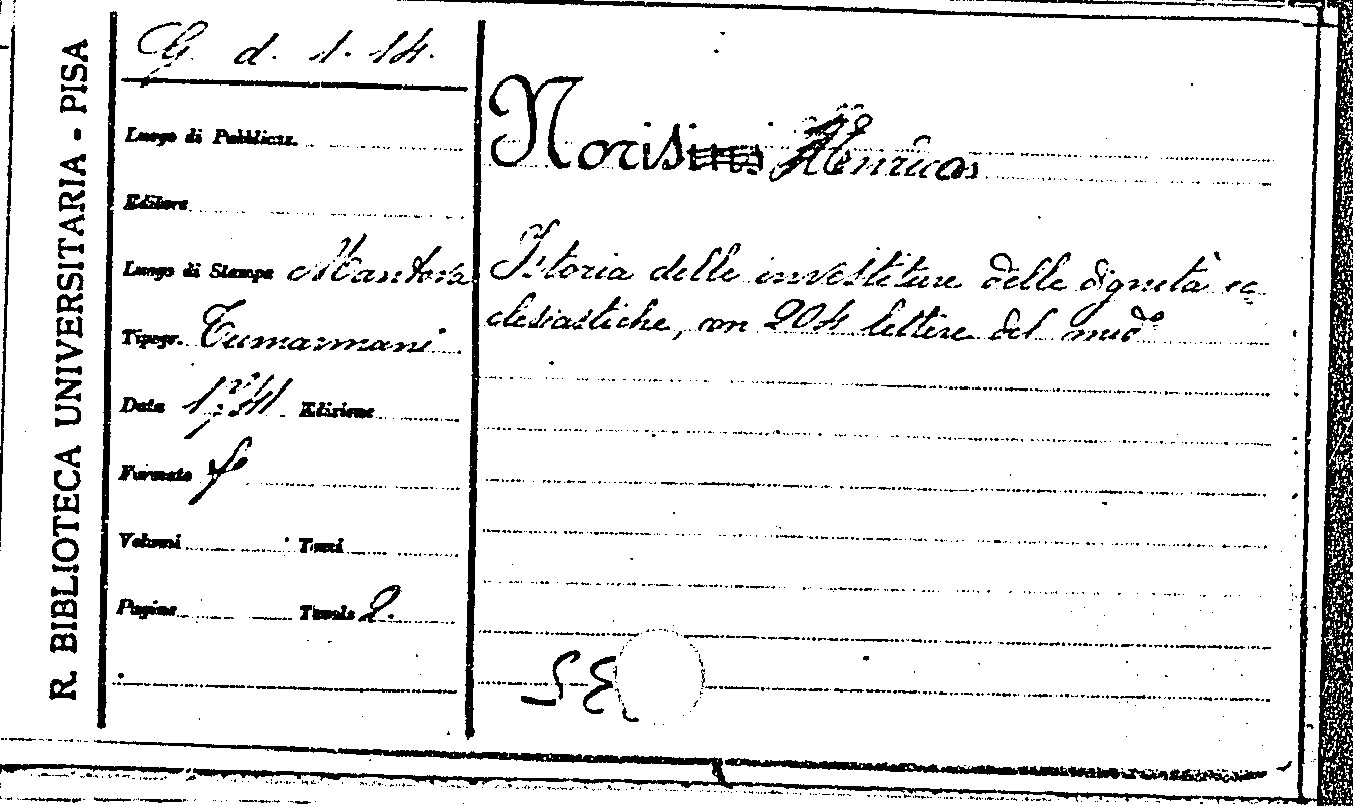 R. BIBLIOTECA UNIVERSITARIA - PISA
G. d. 1. 14.
Luogo di Pubblicaz.
Editore
Luogo di Stampa Mantova
Tipogr. Tumarmani
Data 1741 Edizione
Formato f°
Volumi Tomi
Pagine Tavole 2.
Noris Henricus
Istoria delle investiture delle dignità ec
clesiastiche, con 204 lettere del med°